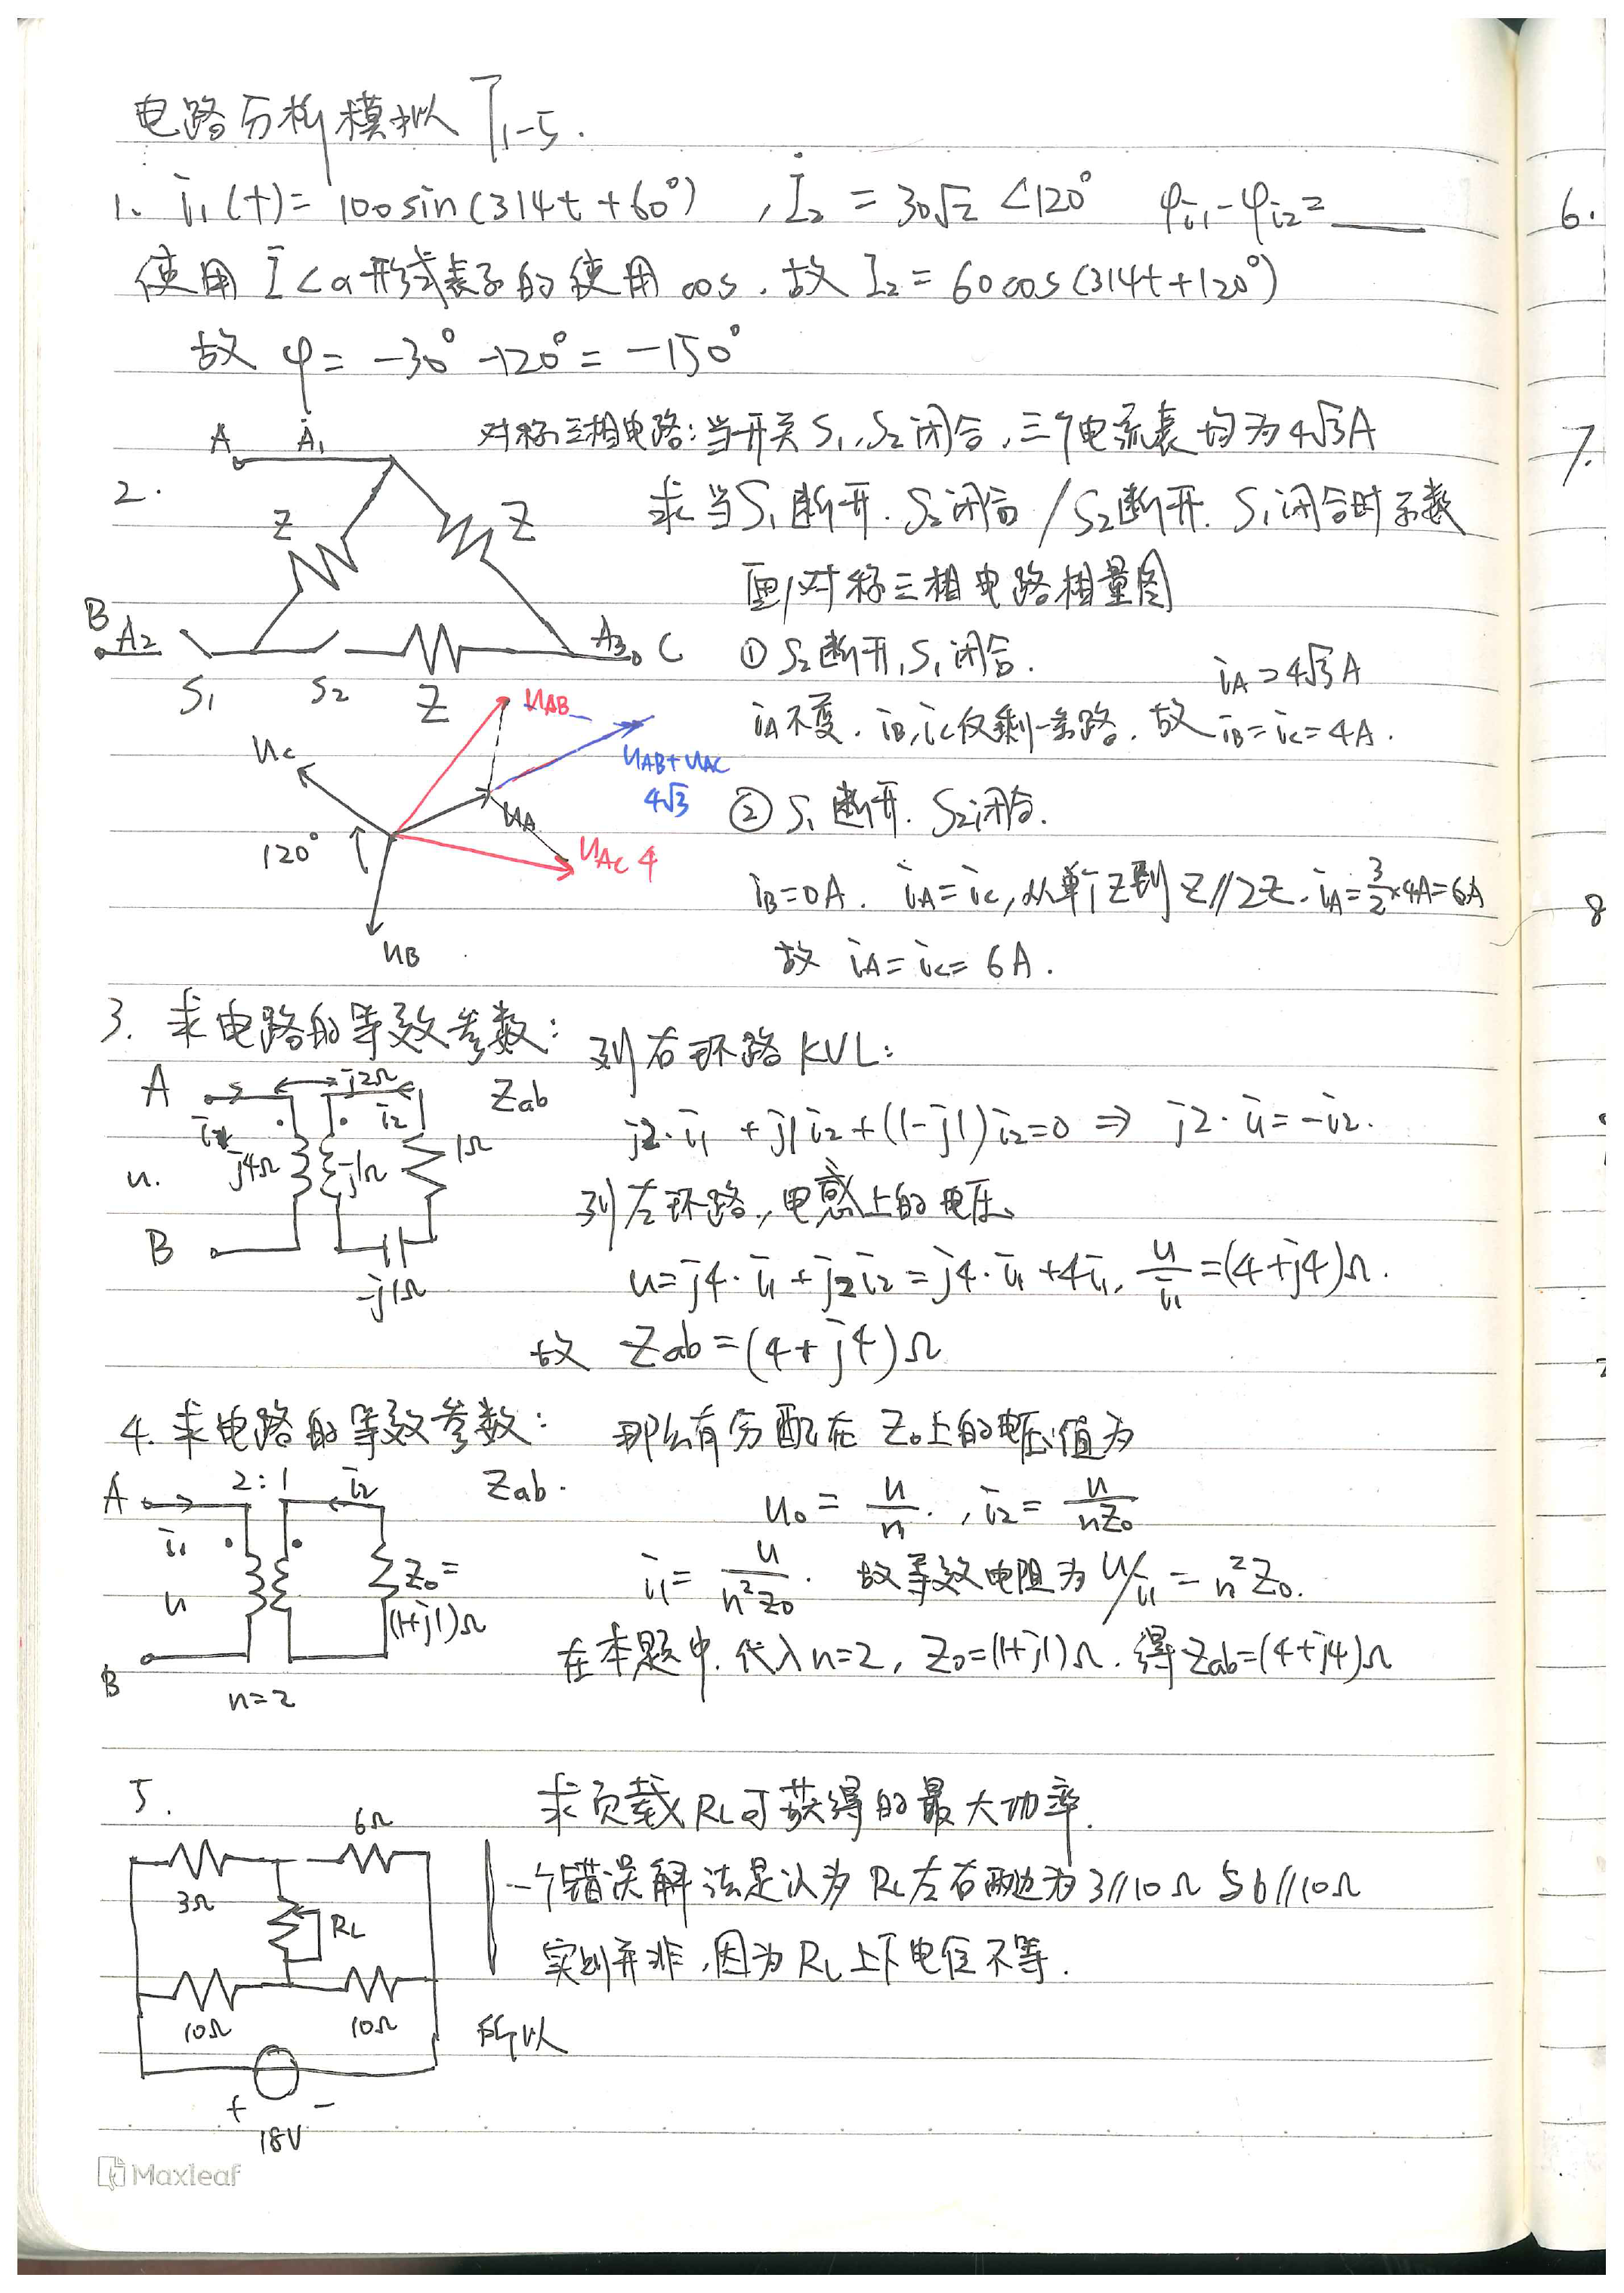 电路分析模拟 T1-5.
1. i₁(t)=100sin(314t+60°) , İ₂ = 30√2 <120° φi₁-φi₂=____
使用 İ<α 形式表示的使用 cos. 故 I₂=60cos(314t+120°)
故 φ= -30°-120°= -150°
2.
对称三相电路:当开关 S₁,S₂闭合,三个电流表均为4√3A
求当S₁断开. S₂闭合 / S₂断开. S₁闭合时示数
画对称三相电路相量图
A A₁
Z Z
B A₂ S₁ S₂ Z A₃ C
① S₂断开,S₁闭合.
iA不变. iB,iC仅剩一条路. 故 iA=4√3A
iB=iC=4A.
UAB
UAB+UAC
4√3
UC
UA
120°
UAC 4
UB
② S₁断开. S₂闭合.
iB=0A. iA=iC,从单个Z到 Z//2Z. iA=3/2×4A=6A
故 iA=iC=6A.
3. 求电路的等效参数:
A j2Ω i₂ Zab
i₁ j4Ω j1Ω 1Ω
u.
B
-j1Ω
列右环路KVL:
j2·i₁ + j1i₂+(1-j1)i₂=0 ⇒ j2·i₁=-i₂.
列左环路,电感上的电压
u=j4·i₁+j2i₂=j4·i₁+4i₁, u/i₁=(4+j4)Ω.
故 Zab=(4+j4)Ω
4. 求电路的等效参数:
A 2:1 i₂ Zab.
i₁
u
Z₀=
(1+j1)Ω
B n=2
那么有分配在 Z₀上的电压值为
u₀ = u/n. , i₂= u/nZ₀
i₁= u/n²Z₀. 故等效电阻为 u/i₁=n²Z₀.
在本题中. 代入n=2, Z₀=(1+j1)Ω. 得Zab=(4+j4)Ω
5.
6Ω
3Ω RL
10Ω 10Ω
+ -
18V
求负载RL可获得的最大功率.
一个错误解法是认为 RL左右两边为3//10Ω 与6//10Ω
实则并非,因为RL上下电位不等.
所以
6.
7.
8
Maxleaf